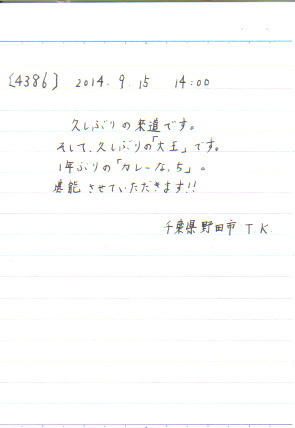 [4386] 2014.9.15 14:00
久しぶりの来道です。
そして、久しぶりの「大王」です。
1年ぶりの「カレーな,5」。
堪能させていただきます!!
千葉県野田市 T.K.